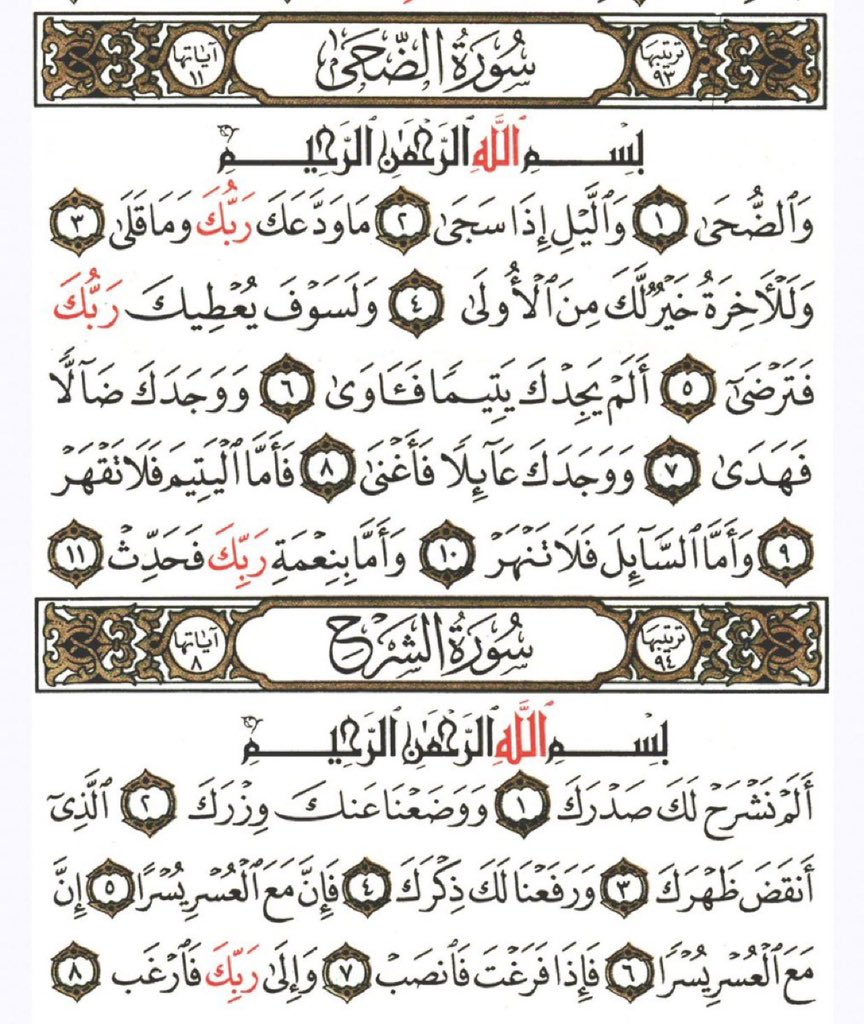 ترتيبها ٩٣ سُورَةُ الضُّحَىٰ آياتها ١١
بِسْمِ ٱللَّهِ ٱلرَّحْمَٰنِ ٱلرَّحِيمِ
وَٱلضُّحَىٰ ١ وَٱلَّيْلِ إِذَا سَجَىٰ ٢ مَا وَدَّعَكَ رَبُّكَ وَمَا قَلَىٰ ٣
وَلَلْـَٔاخِرَةُ خَيْرٌ لَّكَ مِنَ ٱلْأُولَىٰ ٤ وَلَسَوْفَ يُعْطِيكَ رَبُّكَ
فَتَرْضَىٰٓ ٥ أَلَمْ يَجِدْكَ يَتِيمًا فَـَٔاوَىٰ ٦ وَوَجَدَكَ ضَآلًّا
فَهَدَىٰ ٧ وَوَجَدَكَ عَآئِلًا فَأَغْنَىٰ ٨ فَأَمَّا ٱلْيَتِيمَ فَلَا تَقْهَرْ
٩ وَأَمَّا ٱلسَّآئِلَ فَلَا تَنْهَرْ ١٠ وَأَمَّا بِنِعْمَةِ رَبِّكَ فَحَدِّثْ ١١
ترتيبها ٩٤ سُورَةُ الشَّرْحِ آياتها ٨
بِسْمِ ٱللَّهِ ٱلرَّحْمَٰنِ ٱلرَّحِيمِ
أَلَمْ نَشْرَحْ لَكَ صَدْرَكَ ١ وَوَضَعْنَا عَنكَ وِزْرَكَ ٢ ٱلَّذِىٓ
أَنقَضَ ظَهْرَكَ ٣ وَرَفَعْنَا لَكَ ذِكْرَكَ ٤ فَإِنَّ مَعَ ٱلْعُسْرِ يُسْرًا ٥ إِنَّ
مَعَ ٱلْعُسْرِ يُسْرًا ٦ فَإِذَا فَرَغْتَ فَٱنصَبْ ٧ وَإِلَىٰ رَبِّكَ فَٱرْغَب ٨